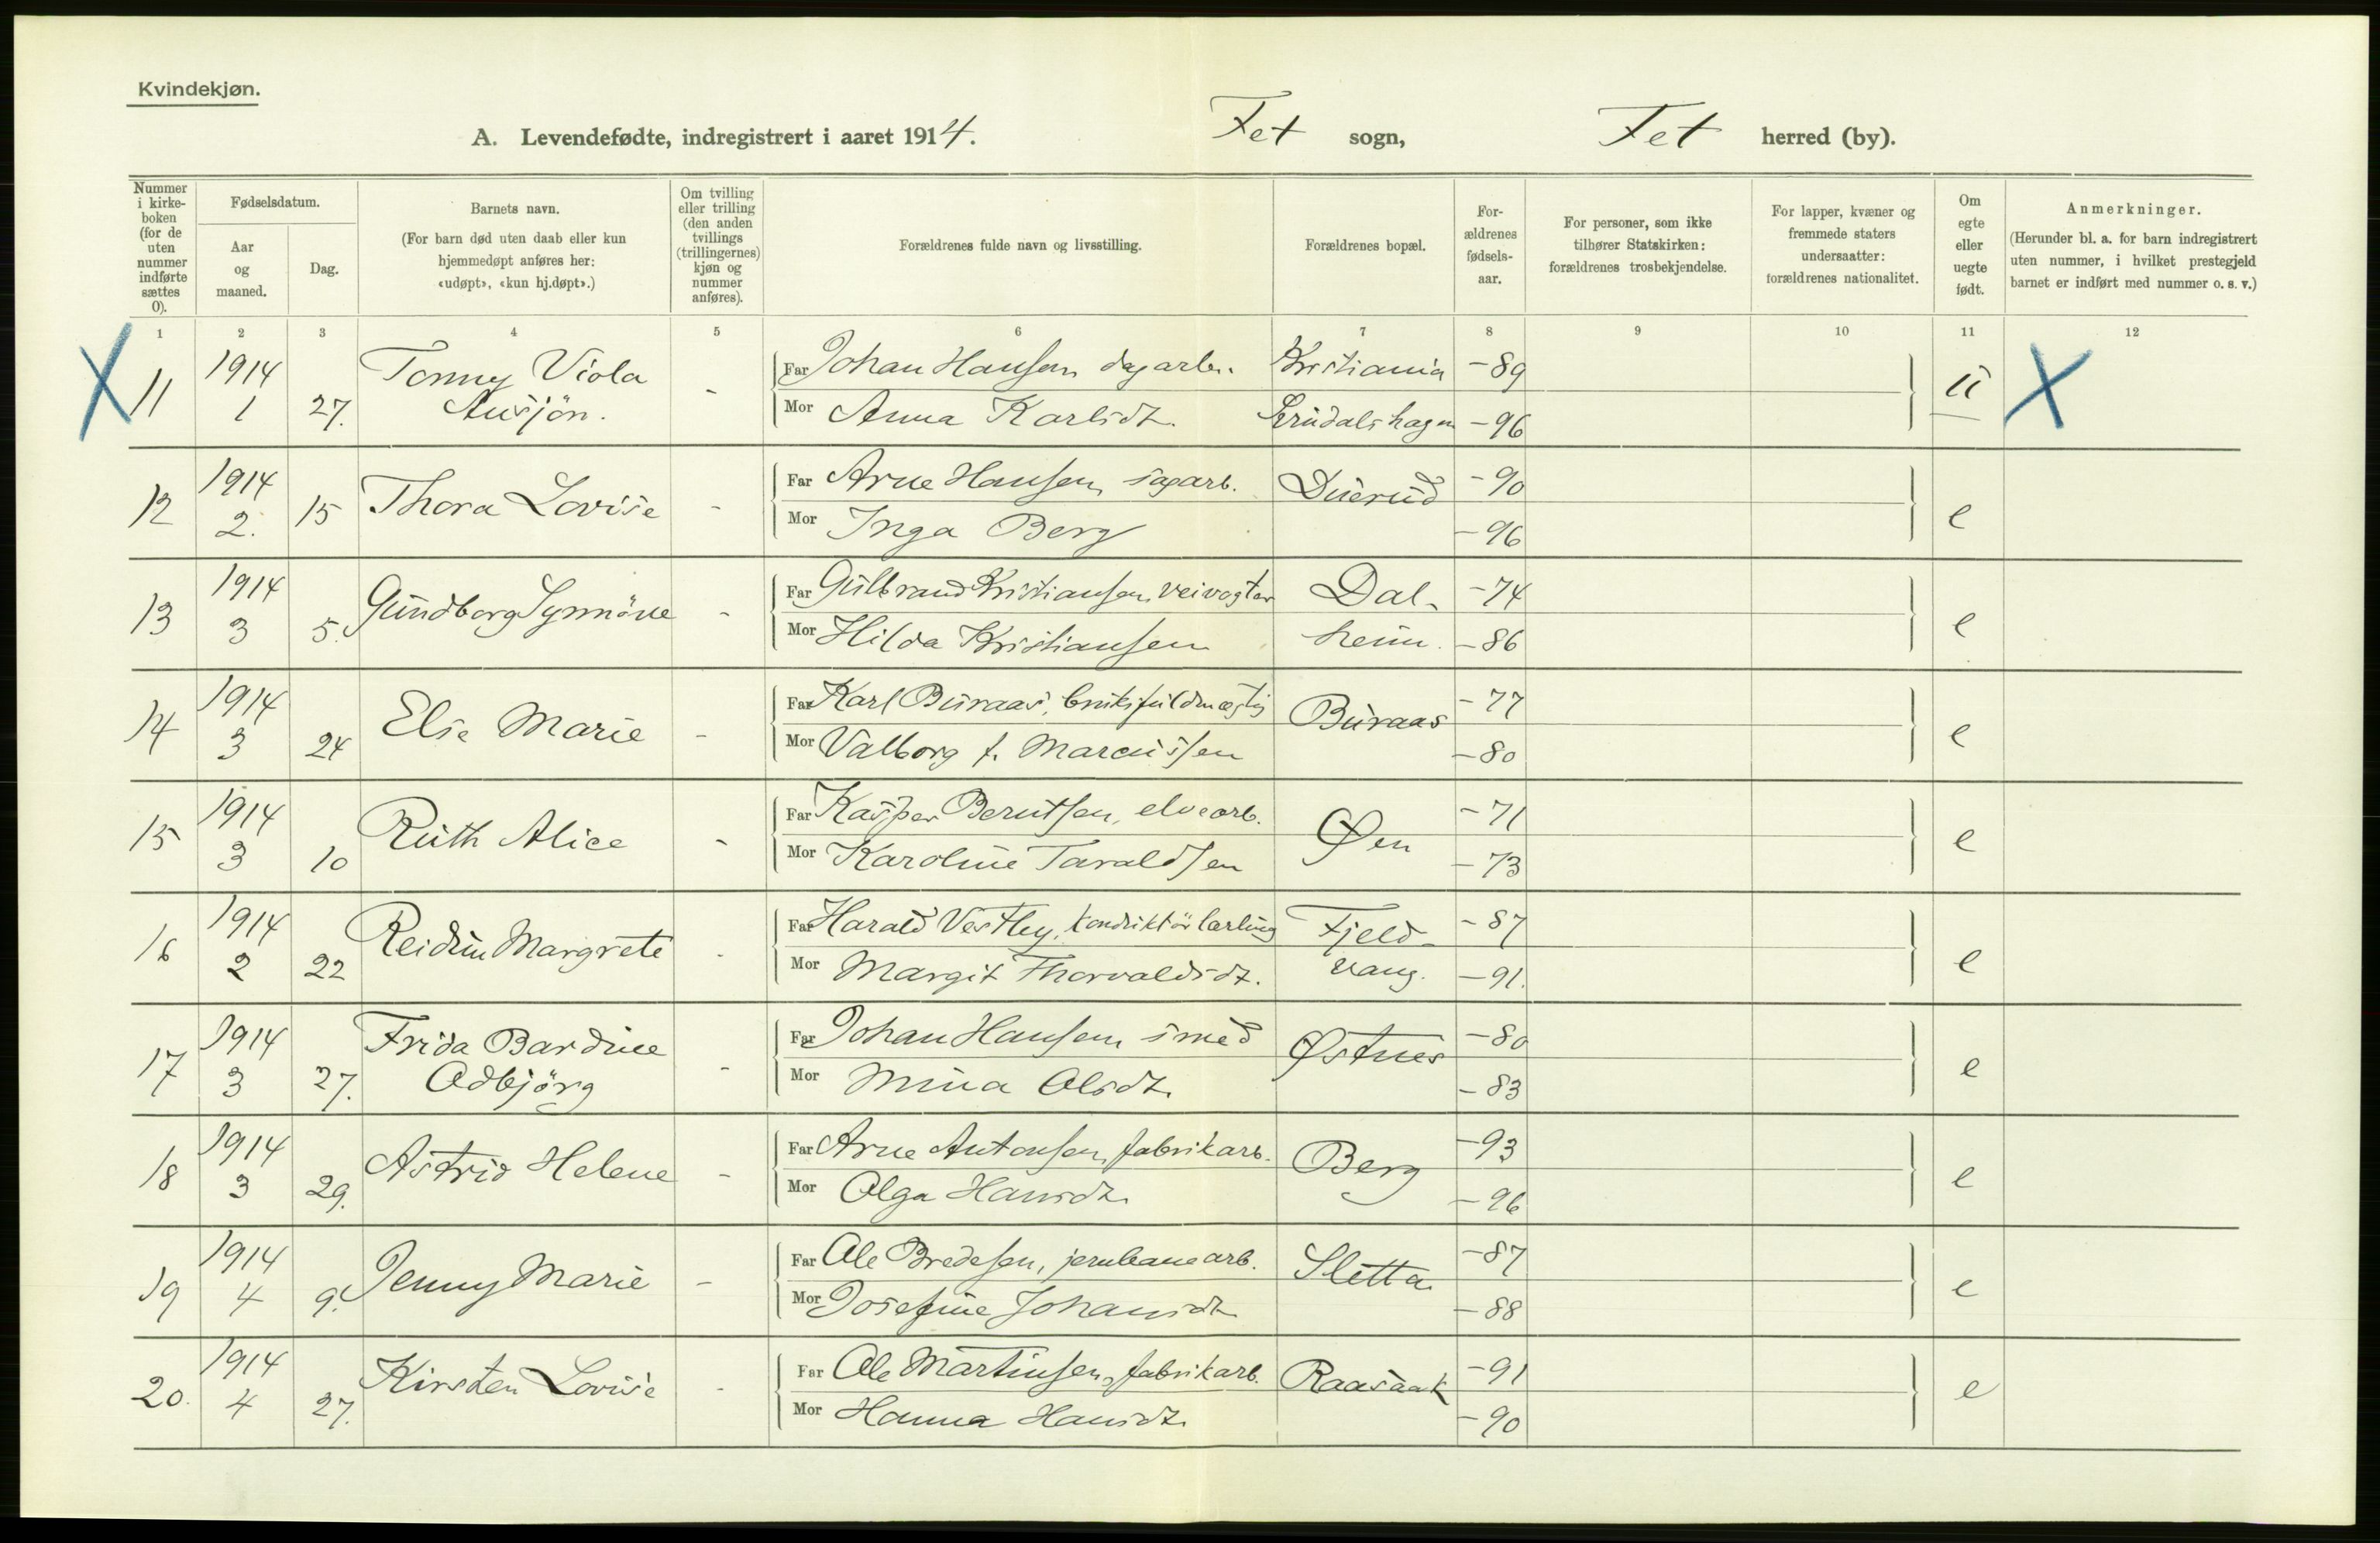 Kvindekjøn.
A. Levendefødte, indregistrert i aaret 1914. Fet sogn, Fet herred (by).
Nummer i kirke-boken (for de uten nummer indførte sættes 0).
Fødselsdatum.
Aar og maaned.
Dag.
Barnets navn.
(For barn død uten daab eller kun hjemmedøpt anføres her: «udøpt», «kun hj.døpt».)
Om tvilling eller trilling (den anden tvillings (trillingernes) kjøn og nummer anføres).
Forældrenes fulde navn og livsstilling.
Forældrenes bopæl.
For-ældrenes fødsels-aar.
For personer, som ikke tilhører Statskirken: forældrenes trosbekjendelse.
For lapper, kvæner og fremmede staters undersaatter: forældrenes nationalitet.
Om egte eller uegte født.
Anmerkninger.
(Herunder bl. a. for barn indregistrert uten nummer, i hvilket prestegjeld barnet er indført med nummer o. s. v.)
1 2 3 4 5 6 7 8 9 10 11 12
X 11 1914 1 27. Tonny Viola - Far Johan Hansen dagarb. Kristiania -89 ŭ X
Mor Anna Karlsdt. -96
12 1914 2. 15 Thora Lovise - Far Arne Hansen, sagarb. Duerud -90 e
Mor Inga Berg -96
13 1914 3 5. Gundborg Synnöve - Far Gulbrand Kristiansen, veivogter Dal- -74 e
Mor Hilda Kristiansen heim. -86
14 1914 3 24 Else Marie - Far Karl Buraas, bruksfuldmægtig Buraas -77 e
Mor Valborg f. Marcussen -80
15 1914 3 10 Ruth Alice - Far Kasper Berntsen, elvearb. Øen -71 e
Mor Karoline Tavaldsen -73
16 1914 2 22 Reidun Margrete - Far Harald Vestby, konduktörlærling Fjeld- -87 e
Mor Margit Thorvaldsdt. vang. -91.
17 1914 3 27. Frida Bardine Odbjörg - Far Johan Hansen, smed Østnes -80 e
Mor Mina Olsdt. -83
18 1914 3 29. Astrid Helene - Far Arne Antonsen, fabrikarb. Berg -93 e
Mor Olga Hansdt. -96
19 1914 4 9. Jenny Marie - Far Ole Bredesen, jernbanearb. Sletta -87 e
Mor Josefine Johansdt. -88
20. 1914 4 27. Kirsten Lovise - Far Ole Martinsen, fabrikarb. Raasaak -91 e
Mor Hanna Hansdt. -90